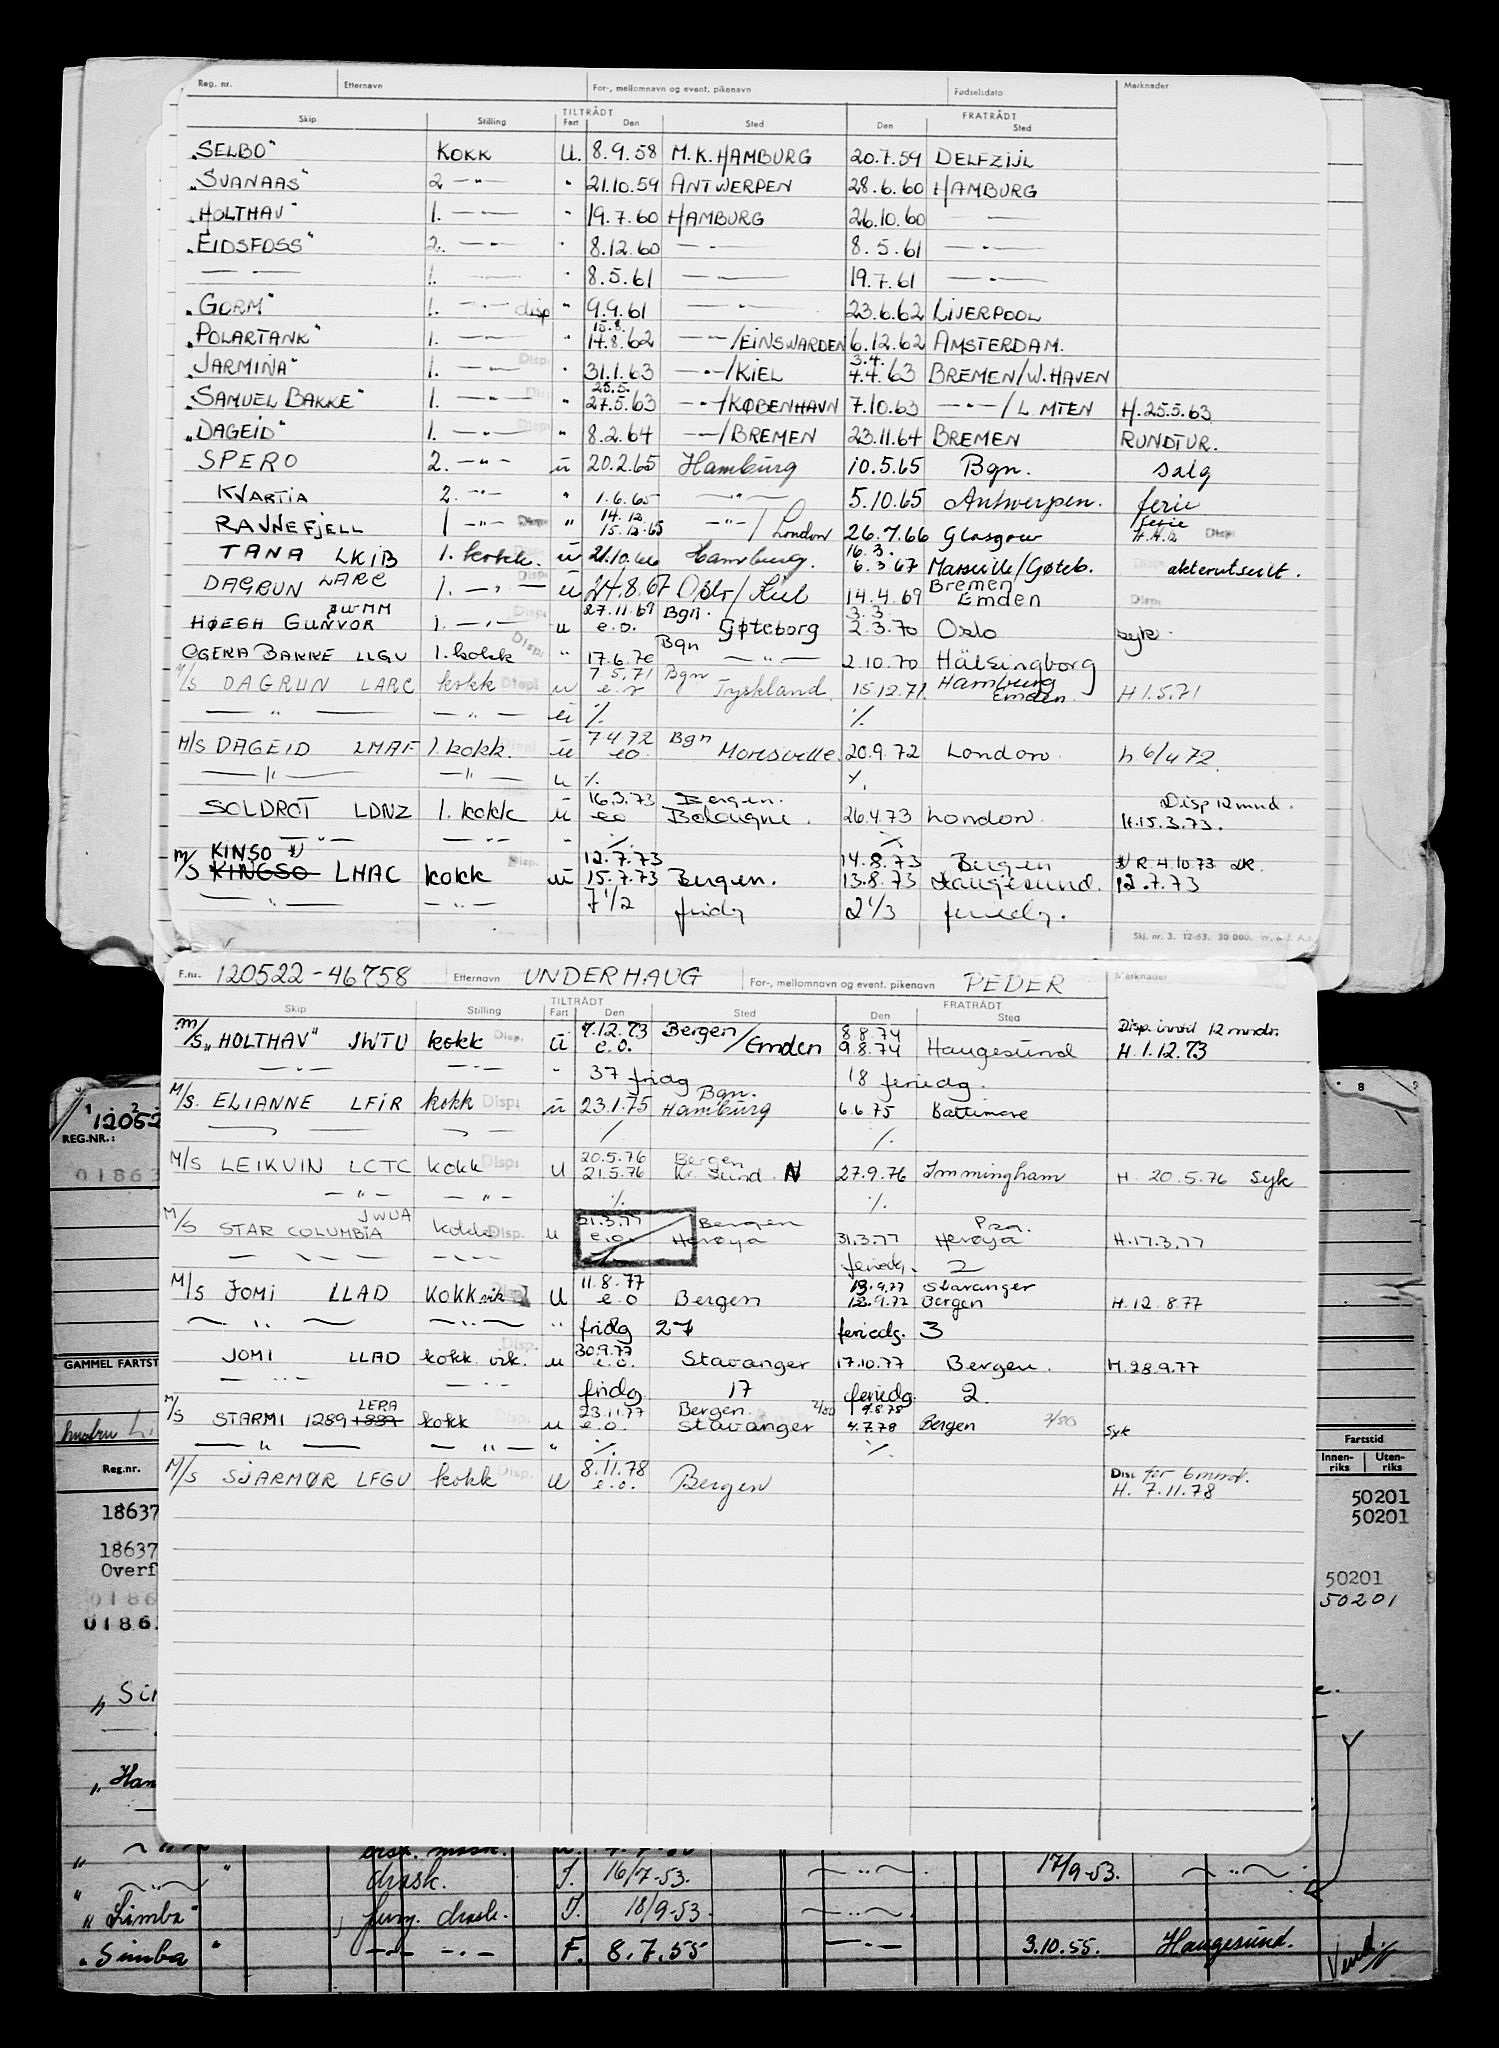 Reg. nr. Etternavn For-, mellomnavn og event. pikenavn Fødselsdato Merknader
TILTRÅDT FRATRÅDT
Skip Stilling Fart Den Sted Den Sted
„SELBO" KOKK U. 8.9.58 M.K. HAMBURG 20.7.59 DELFZIJL
„SVANAAS" 2 —"— " 21.10.59 ANTWERPEN 28.6.60 HAMBURG
„HOLTHAV" 1. —"— " 19.7.60 HAMBURG 26.10.60 —
„EIDSFOSS" 2. —"— " 8.12.60 —"— 8.5.61 —"—
—"— 1. —"— " 8.5.61 —"— 19.7.61 —"—
„GORM" 1. —"— disp " 9.9.61 —"— 23.6.62 LIVERPOOL
15.8.
„POLARTANK" 1. —"— " 14.8.62 —"—/EINSWARDEN 6.12.62 AMSTERDAM.
3.4.
„JARMINA" 1. —"— Disp. " 31.1.63 —"—/KIEL 4.4.63 BREMEN/W.HAVEN
25.5.
„SAMUEL BAKKE" 1. —"— Disp. " 27.5.63 —"—/KØBENHAVN 7.10.63 —"—/L.MTEN H.25.5.63
„DAGEID" 1. —"— Disp. " 8.2.64 —"—/BREMEN 23.11.64 BREMEN RUNDTUR.
SPERO 2. —"— u 20.2.65 Hamburg 10.5.65 Bgn. salg
KVARTIA 2. —"— " 1.6.65 —"— 5.10.65 Antwerpen. ferie
14.12. ferie
RAVNEFJELL 1 —"— Disp. " 15.12.65 —"—/London 26.7.66 Glasgow Disp.
16.3.
TANA LKIB 1. kokk. u 21.10.66 Hamburg. 6.3.67 Marseille/Gøteb. akterutseilt.
Bremen
DAGRUN LARC 1. —"— Disp. u 24.8.67 Oslo/Kiel 14.4.69 Emden Disp.
JWMM 27.11.69 Bgn. 3.3.
HØEGH GUNVOR 1. —"— u e.o. Gøteborg 2.3.70 Oslo syk.
Bgn
OGEKA BAKKE LLGV 1. kokk Disp. " 17.6.70 —"— 2.10.70 Hälsingborg
7 5.71 Bgn Hamburg
M/S DAGRUN LARC kokk Disp. u Tyskland 15.12.71. Emden. H 1.5.71
—"— —"— u % %
7 4 72 Bgn
M/S DAGEID LMAF 1. kokk. Disp. u eo. 20.9.72 London. h. 6/4 72.
—"— —"— u % %
16.3.73 Bergen. Disp 12 mnd.
SOLDROT LDNZ 1. kokk u eo 26.4.73 London. H.15.3.73.
—"— —"— " % %
KINSO x) 12.7.73 14.8.73 Bergen x) R.4.10.73
M/S KINGSO LHAC kokk Disp. u 15.7.73 Bergen. 13.8.73 Haugesund. 12.7.73
—"— —"— 7 1/2 fridg 2 1/3 feriedg.
Skj. nr. 3. 12-63. 30 000. W. & J. A.s.
F.nr. 120522-46758 Etternavn UNDERHAUG For-, mellomnavn og event. pikenavn PEDER Merknader
TILTRÅDT FRATRÅDT
Skip Stilling Fart Den Sted Den Sted
7.12.73 Bergen 8 8.74 Disp. inntil 12 mndr.
M/S „HOLTHAV" JWTU kokk Disp. u e.o. /Emden 9 8.74 Haugesund H.1.12.73
—"— —"— " 37 fridg 18 feriedg.
Bgn.
M/S. ELIANNE LFIR kokk Disp. u 23.1.75 Hamburg 6.6.75 Baltimore
—"— —"— % %
20.5.76 Bergen
M/S LEIKVIN LCTC kokk Disp. u 21.5.76 Kr. Sund. N 27.9.76 Immingham H. 20.5.76 Syk
—"— —"— % %
JWUA 21.3.77 Bergen
M/S STAR COLUMBIA kokk Disp. u e.o. Herøya 31.3.77 Herøya H.17.3.77
—"— —"— feriedg. 2
11.8.77 13.9.77 Stavanger
M/S JOMI LLAD KOKK vik u e.o Bergen 12.9.77 Bergen H.12.8.77
—"— —"— " fridg 27 feriedg. 3
30.9.77
JOMI LLAD kokk vik. Disp. u e.o. Stavanger 17.10.77 Bergen. H.28.9.77
—"— —"— fridg. 17 feriedg. 2.
LERA 23.11.77 Bergen. 2/80 9.8.78
M/S STARMI 1289 kokk Disp. u e.o. Stavanger 4.7.78 Bergen 7/80 syk
—"— —"— " % %
8.11.78 Disp for 6 mnd.
M/S SJARMØR LFGV kokk Disp. u e.o. Bergen H. 7.11.78
12052
REG.NR.:
01863
GAMMEL FARTST
Reg.nr. Fartstid
Innen-riks Uten-riks
18637 50201
50201
18637 50201
Overf 50201
0186
0186
„Sim
„Han
drask. I. 16/7-53. —"— 17/9-53. —"—
„Simba" jung. drask. I. 18/9-53. —"—
„Simba" —"— F. 8.7.55 —"— 3.10.55. Haugesund. Vend.